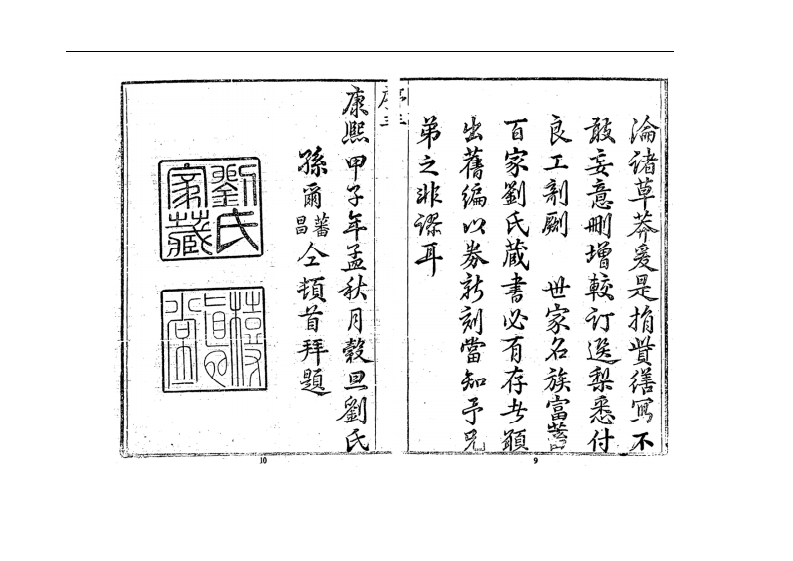 淪諸草莽爰是捐貲繕寫不
敢妄意刪增較訂選梨悉付
良工剞劂　世家名族富蓄
百家劉氏蔵書必有存者願
出舊編以券新刻當知予兄
弟之非謬耳
9
序五
康熙甲子年孟秋月穀旦劉氏
孫爾蕃昌仝頓首拜題
劉氏家藏
10